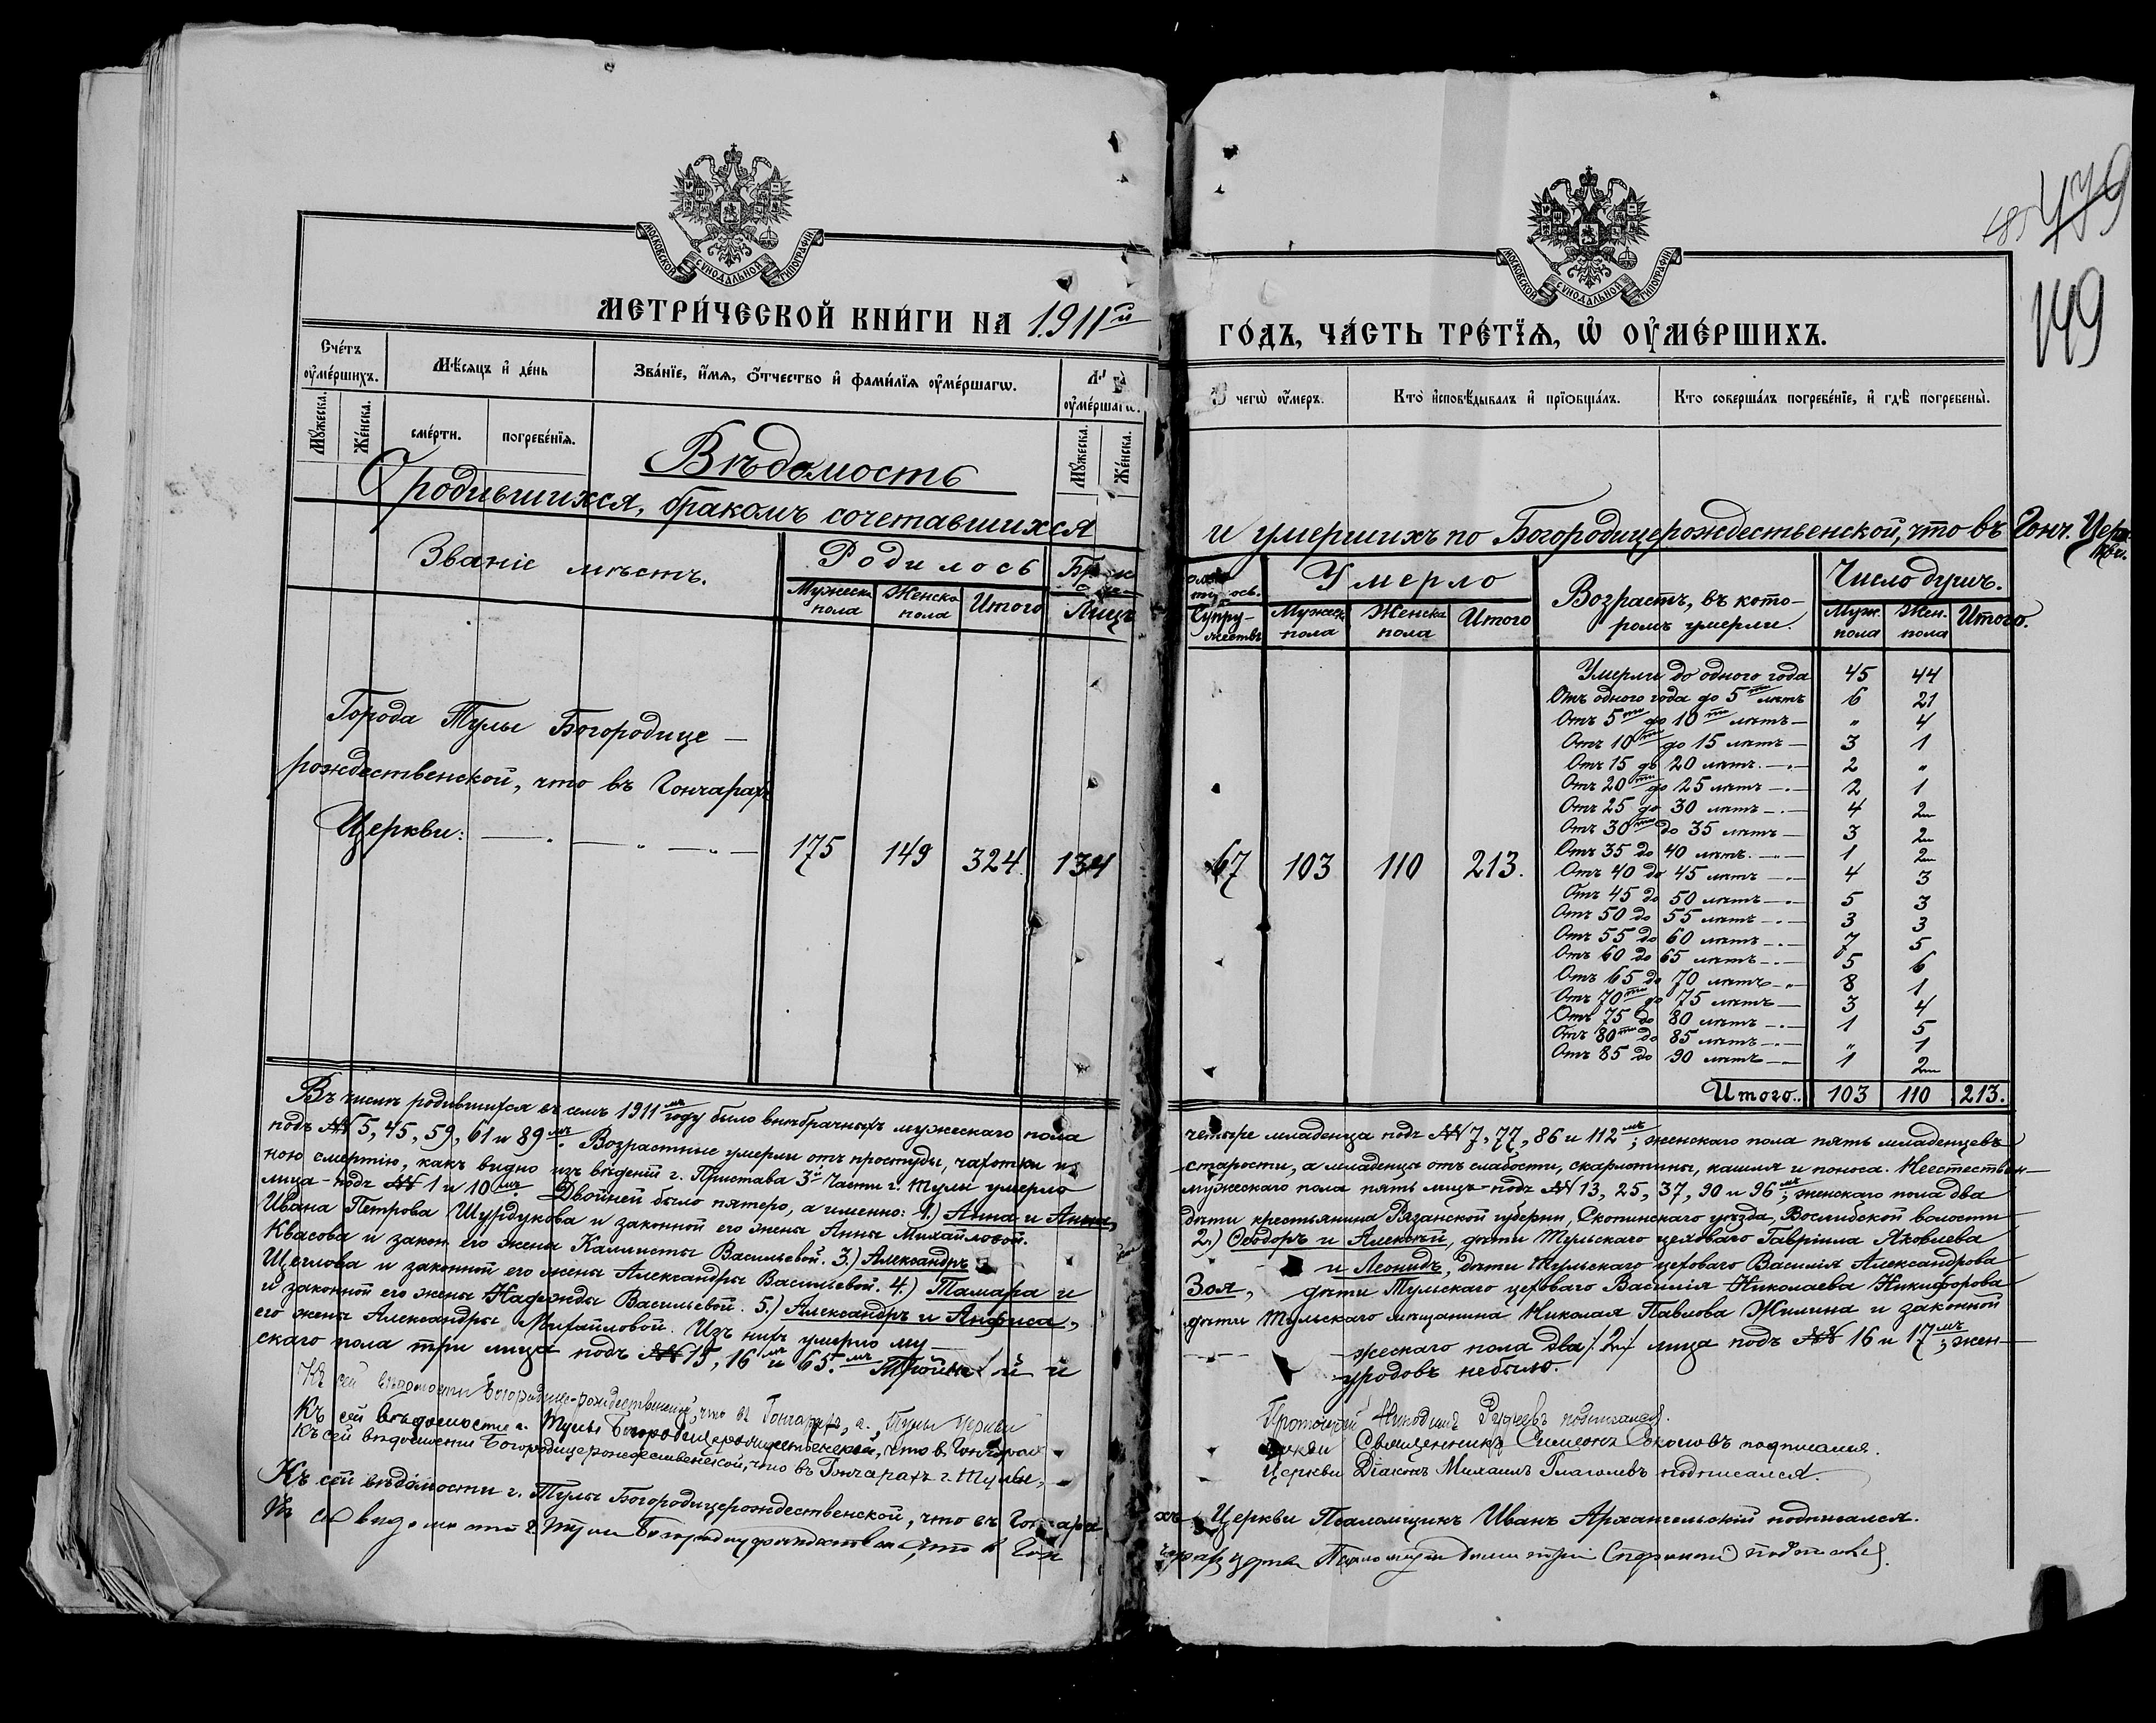 479
485
149
МОСКОВСКОЙ СѴНОДАЛЬНОЙ ТИПОГРАФІИ
МОСКОВСКОЙ СѴНОДАЛЬНОЙ ТИПОГРАФІИ
МЕТРИ́ЧЕСКОЙ КНИ́ГИ НА 1911й
ГО́ДЪ, ЧА́СТЬ ТРЕ́ТЇѦ, Ѡ҆ ОУ҆МЕ́РШИХЪ.
Сче́тъ оу҆ме́ршихъ.
Мѣ́сяцъ и҆ де́нь
Зва́нїе, и҆́мѧ, ѻ҆́тчество и҆ фами́лїѧ оу҆ме́ршагѡ.
оу҆ме́ршагѡ.
чегѡ̀ оу҆́меръ.
Кто̀ и҆сповѣ́дывалъ и҆ прїѡбща́лъ.
Кто соверша́лъ погребе́нїе, и҆ гдѣ̀ погребены̀.
Мꙋ́жеска.
Же́нска.
сме́рти.
погребе́нїѧ.
Мꙋ́жеска.
Же́нска.
Вѣдомость
О родившихся, бракомъ сочетавшихся
и умершихъ по Богородицерождественской, что въ Гонч. Церкви.
Званіе мѣстъ.
Родилось
Мужеска пола
Женска пола
Итого
Лицъ
Супружествъ
Умерло
Мужеска пола
Женска пола
Итого
Возрастъ, въ которомъ умерли.
Число душъ.
Муж. пола
Жен. пола
Итого.
Города Тулы Богородице-
рождественской, что въ Гончарахъ
Церкви:
175 149 324. 134
67 103 110 213.
Умерли до одного года 45 44
Отъ одного года до 5ти лѣтъ 6 21
Отъ 5ти до 10ти лѣтъ — „ 4
Отъ 10ти до 15 лѣтъ — 3 1
Отъ 15 до 20 лѣтъ. — 2 „
Отъ 20ти до 25 лѣтъ — 2 1
Отъ 25 до 30 лѣтъ — 4 2
Отъ 30ти до 35 лѣтъ — 3 2
Отъ 35 до 40 лѣтъ. — 1 2
Отъ 40 до 45 лѣтъ — 4 3
Отъ 45 до 50 лѣтъ — 5 3
Отъ 50 до 55 лѣтъ — 3 3
Отъ 55 до 60 лѣтъ — 7 5
Отъ 60 до 65 лѣтъ — 5 6
Отъ 65 до 70 лѣтъ — 8 1
Отъ 70ти до 75 лѣтъ — 3 4
Отъ 75 до 80 лѣтъ — 1 5
Отъ 80ти до 85 лѣтъ — „ 1
Отъ 85 до 90 лѣтъ — 1 2
Итого.. 103 110 213.
Въ числѣ родившихся въ семъ 1911мъ году было внѣбрачныхъ мужескаго пола
четыре младенца подъ №№ 7, 77, 86 и 112мъ; женскаго пола пять младенцевъ
подъ №№ 5, 45, 59, 61 и 89мъ. Возрастные умерли отъ простуды, чахотки и
старости, а младенцы отъ слабости, скарлотины, кашля и поноса. Неестествен-
ною смертію, какъ видно изъ вѣденій г. Пристава 3й Части г. Тулы умерло
мужескаго пола пять лицъ подъ №№ 13, 25, 37, 90 и 96мъ; женскаго пола два
лица - подъ №№ 1 и 10мъ. Двойней было пятеро, а именно: 1.) Анна и Анна,
дѣти крестьянина Рязанской губерніи, Скопинскаго уѣзда, Вослибской волости
Ивана Петрова Шурдукова и законной его жены Анны Михайловой.
2.) Ѳеодоръ и Алексѣй, дѣти Тульскаго цеховаго Гавріила Яковлева
Квасова и закон. его жены Каллисты Васильевой. 3.) Александръ
и Леонидъ, дѣти Тульскаго цеховаго Василія Александрова
Щеглова и законной его жены Александры Васильевой. 4.) Тамара и
Зоя, дѣти Тульскаго цеховаго Василія Николаева Никифорова
и законной его жены Надежды Васильевой. 5.) Александръ и Анфиса,
дѣти Тульскаго мѣщанина Николая Павлова Жилина и законной
его жены Александры Михайловой. Изъ нихъ умерло му-
жескаго пола два /2/ лица подъ №№ 16 и 17мъ; жен-
скаго пола три лица подъ №№ 15, 16 и 65.мъ Тройней и
уродовъ небыло.
Къ сей вѣдомости Богородице-рождественской, что въ Гончарахъ, г. Тулы Церкви
Протоіерей Никодимъ Рудневъ подписался.
Къ сей вѣдомости г. Тулы Богородицерождественской, что въ Гончарахъ
Церкви Священникъ Симеонъ Соколовъ подписался.
Къ сей вѣдомости Богородицерождественской, что въ Гончарахъ г. Тулы,
Церкви Діаконъ Михаилъ Глаголевъ подписался.
Къ сей вѣдомости г. Тулы Богородицерождественской, что въ Гончара
хъ Церкви Псаломщикъ Иванъ Архангельскій подписался.
Къ сей вѣдомости г. Тулы Богородицерождественской, что въ Гон
чарахъ церкви Псаломщикъ Димитрій подписался.